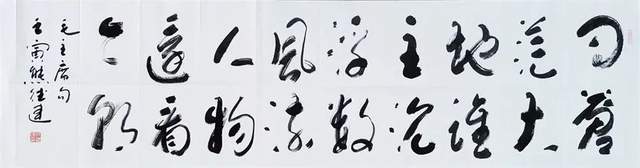 问苍
茫大
地谁
主沉
浮数
风流
人物
还看
今朝
毛主席句
壬寅熊建